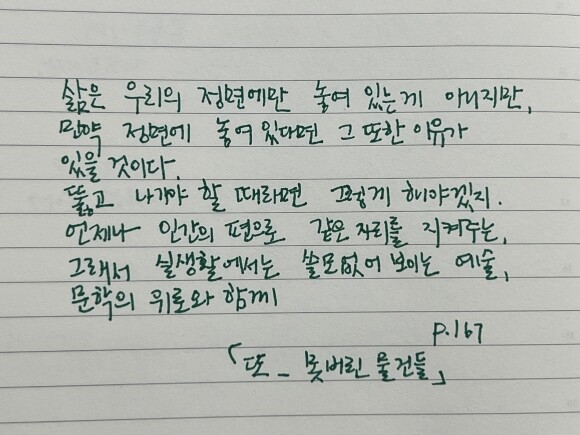 삶은 우리의 정면에만 놓여 있는게 아니지만,
만약 정면에 놓여 있다면 그 또한 이유가
있을 것이다.
뚫고 나가야 할 때라면 그렇게 해야겠지.
언제나 인간의 편으로 같은 자리를 지켜주는,
그래서 실생활에서는 쓸모없어 보이는 예술,
문학의 위로와 함께
p.167
「또_못버린 물건들」